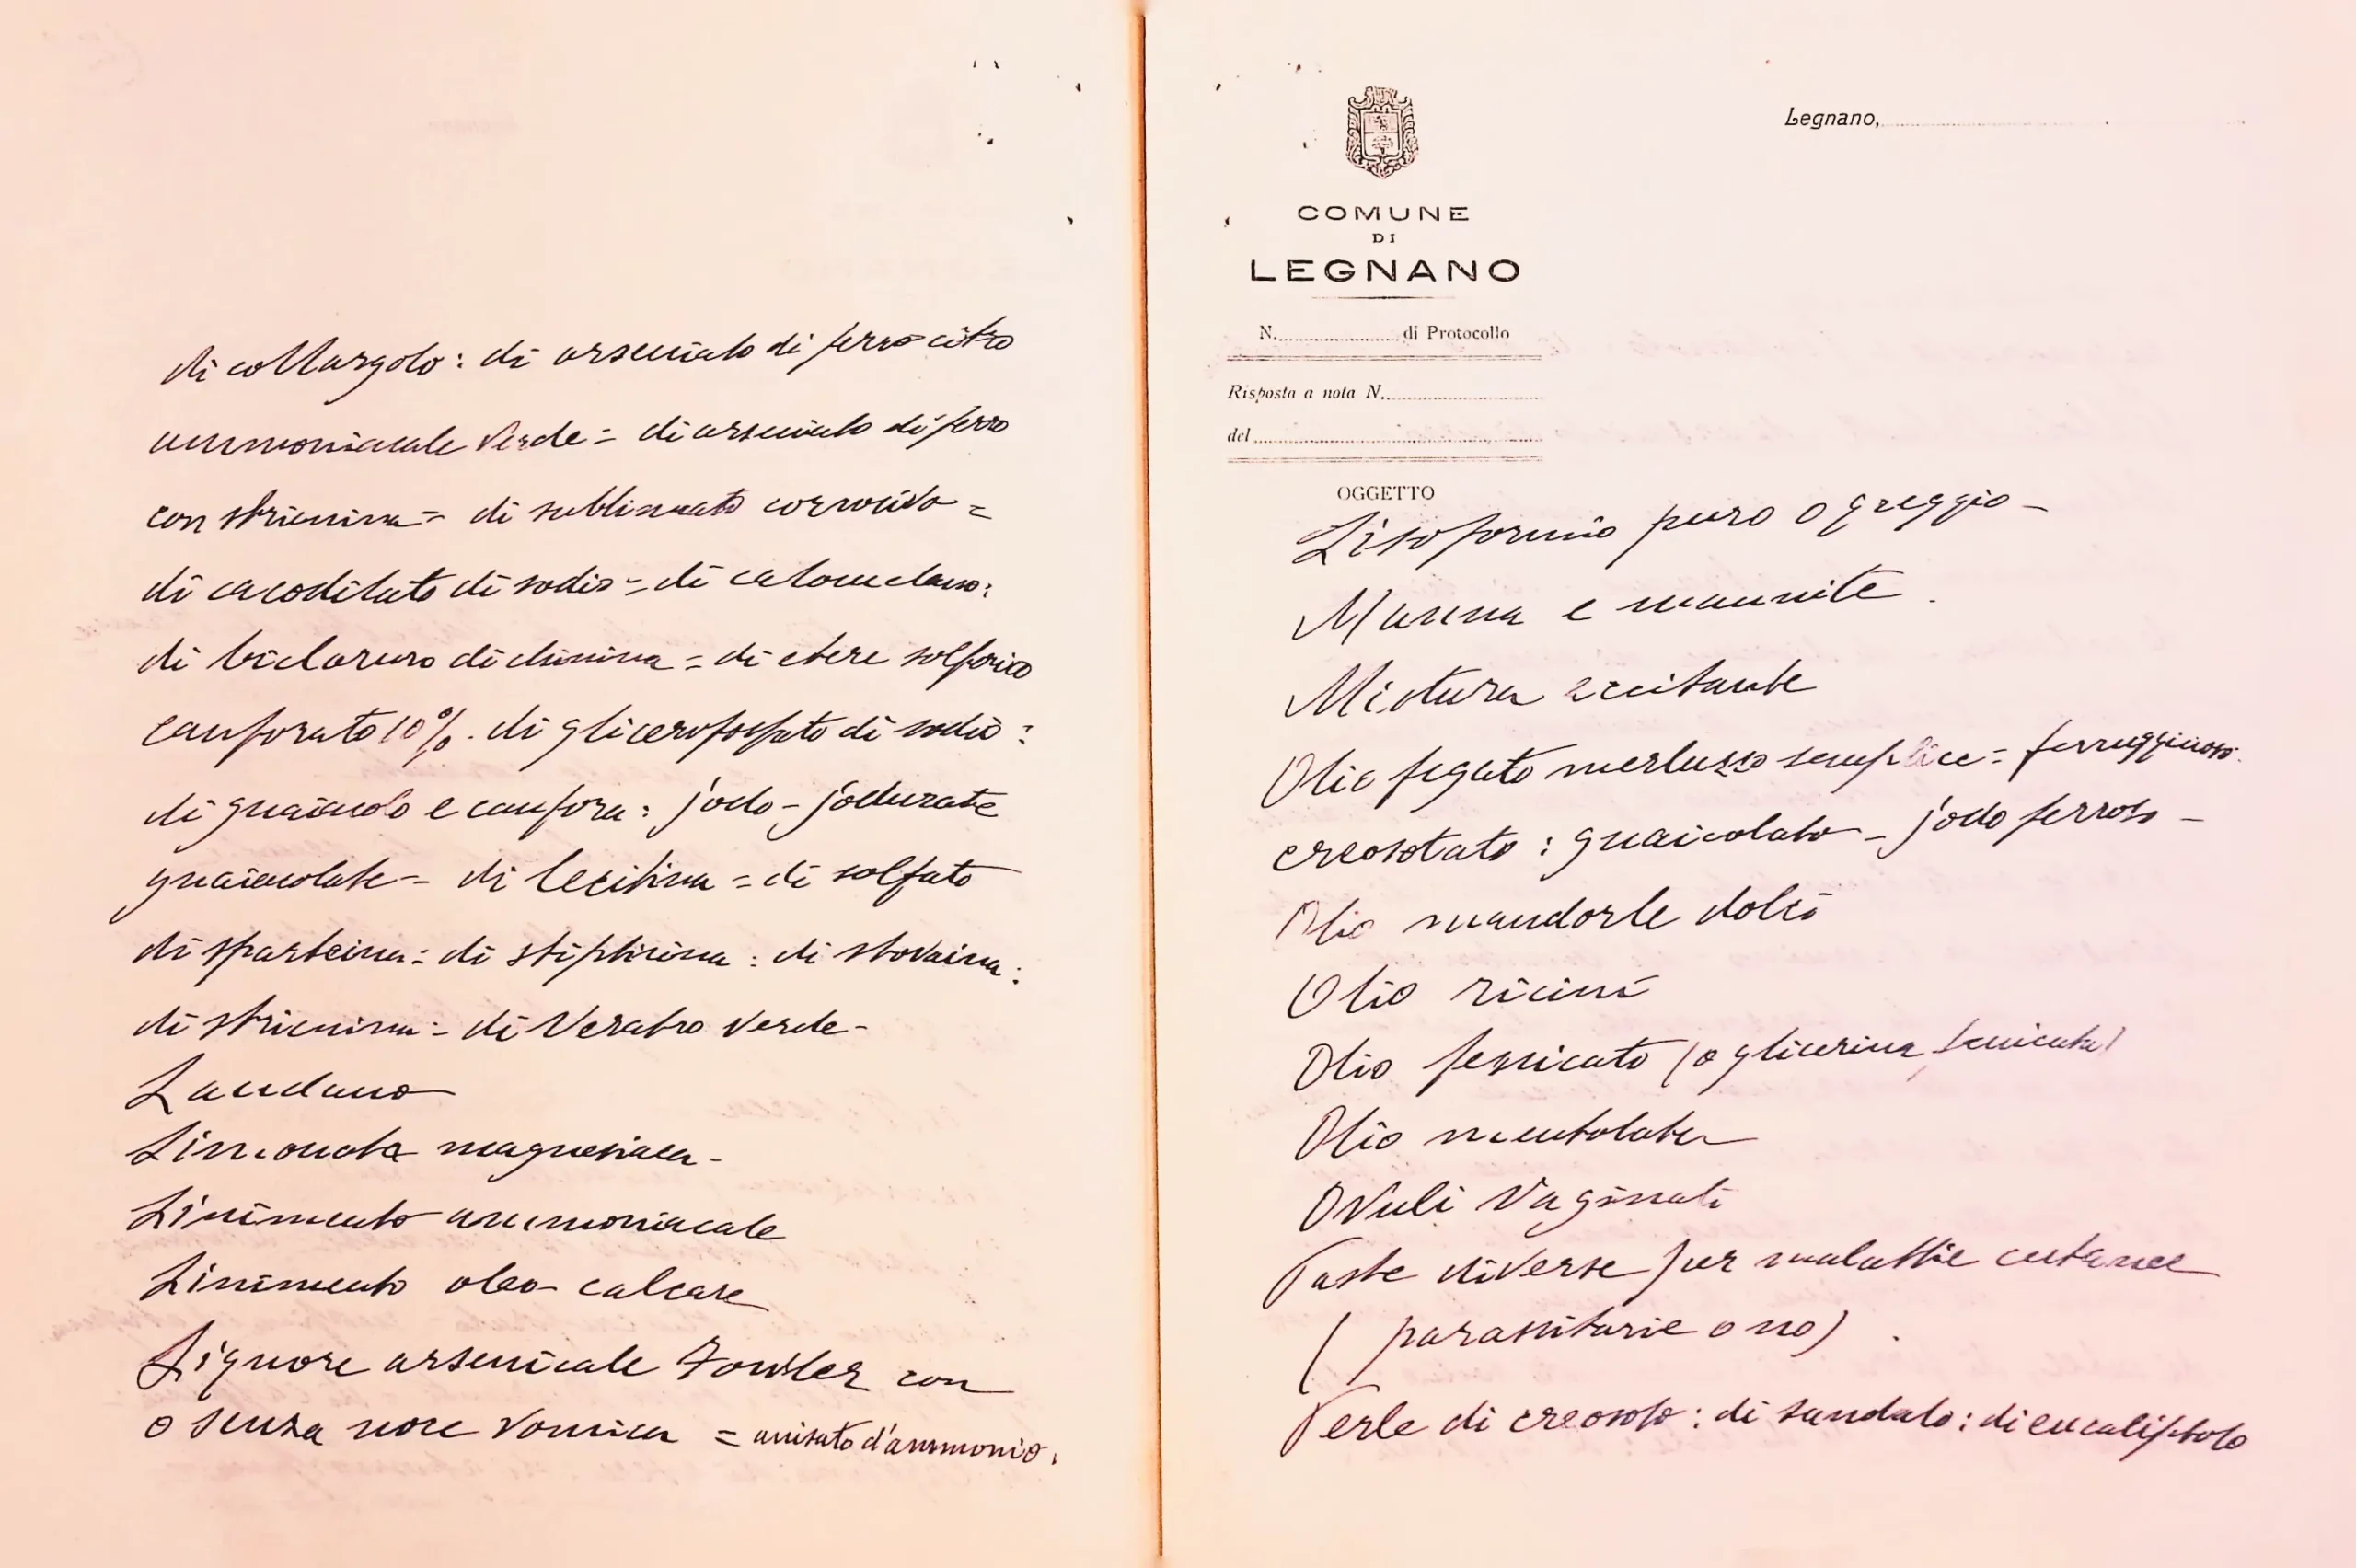 di collargolo: di arseniato di ferro citro
ammoniacale verde = di arseniato di ferro
con stricnina = di sublimato corrosivo =
di cacodilato di sodio = di calomelano:
di bicloruro di chinina = di etere solforico
canforato 10%. di glicerofosfato di sodio:
di guaiacolo e canfora: jodo-jodurate
guaiacolate = di lecitina = di solfato
di sparteina: di stiptirina: di stovaina:
di stricnina = di Veratro verde -
Laudano
Limonata magnesiaca -
Linimento ammoniacale
Linimento oleo-calcare
Liquore arsenicale Fowler con
o senza noce vomica = anisato d'ammonio.
Legnano,
COMUNE
DI
LEGNANO
N. di Protocollo
Risposta a nota N.
del
OGGETTO
Lisoformio puro o greggio -
Manna e mannite.
Mistura eccitante
Olio fegato merluzzo semplice = ferruginoso
creosotato: guaicolato - jodo ferroso -
Olio mandorle dolci
Olio ricini
Olio fenicato (o glicerina fenicata)
Olio mentolato
Ovuli vaginali
Paste diverse per malattie cutanee
(parassitarie o no).
Perle di creosoto: di sandalo: di eucaliptolo